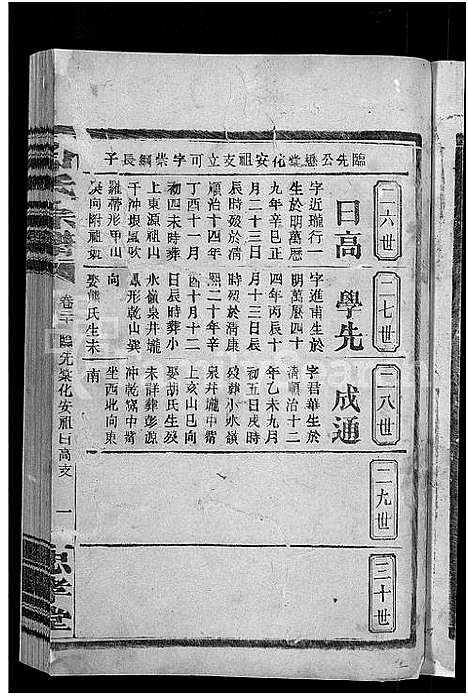 臨先公懋棠化安祖支立可字柴綱長子
二六世
日高
字近瓏行一
生於明萬曆
九年辛巳正
月二十三日
辰時殁於清
順治十四年
丁酉十一月
初四未時葬
上東源祖山
干沖坝風吹
羅帶形甲山
庚向附祖塋
二七世
學先
字進甫生於
明萬曆四十
四年丙辰十
月十三日辰
時殁於清康
熙二十年辛
酉十月十二
日辰時葬小
永嶺泉井壠
鳳形乾山巽
向
娶熊氏生未
二八世
成通
字君華生於
清順治十二
年乙未九月
初五日戌時
殁葬小水嶺
泉井壠中嘴
上亥山巳向
娶胡氏生殁
未詳葬彭源
沖乾窩中嘴
坐西北向東
南
二九世
三十世
卷三十
臨先棠化安祖日高支
一
忠孝堂